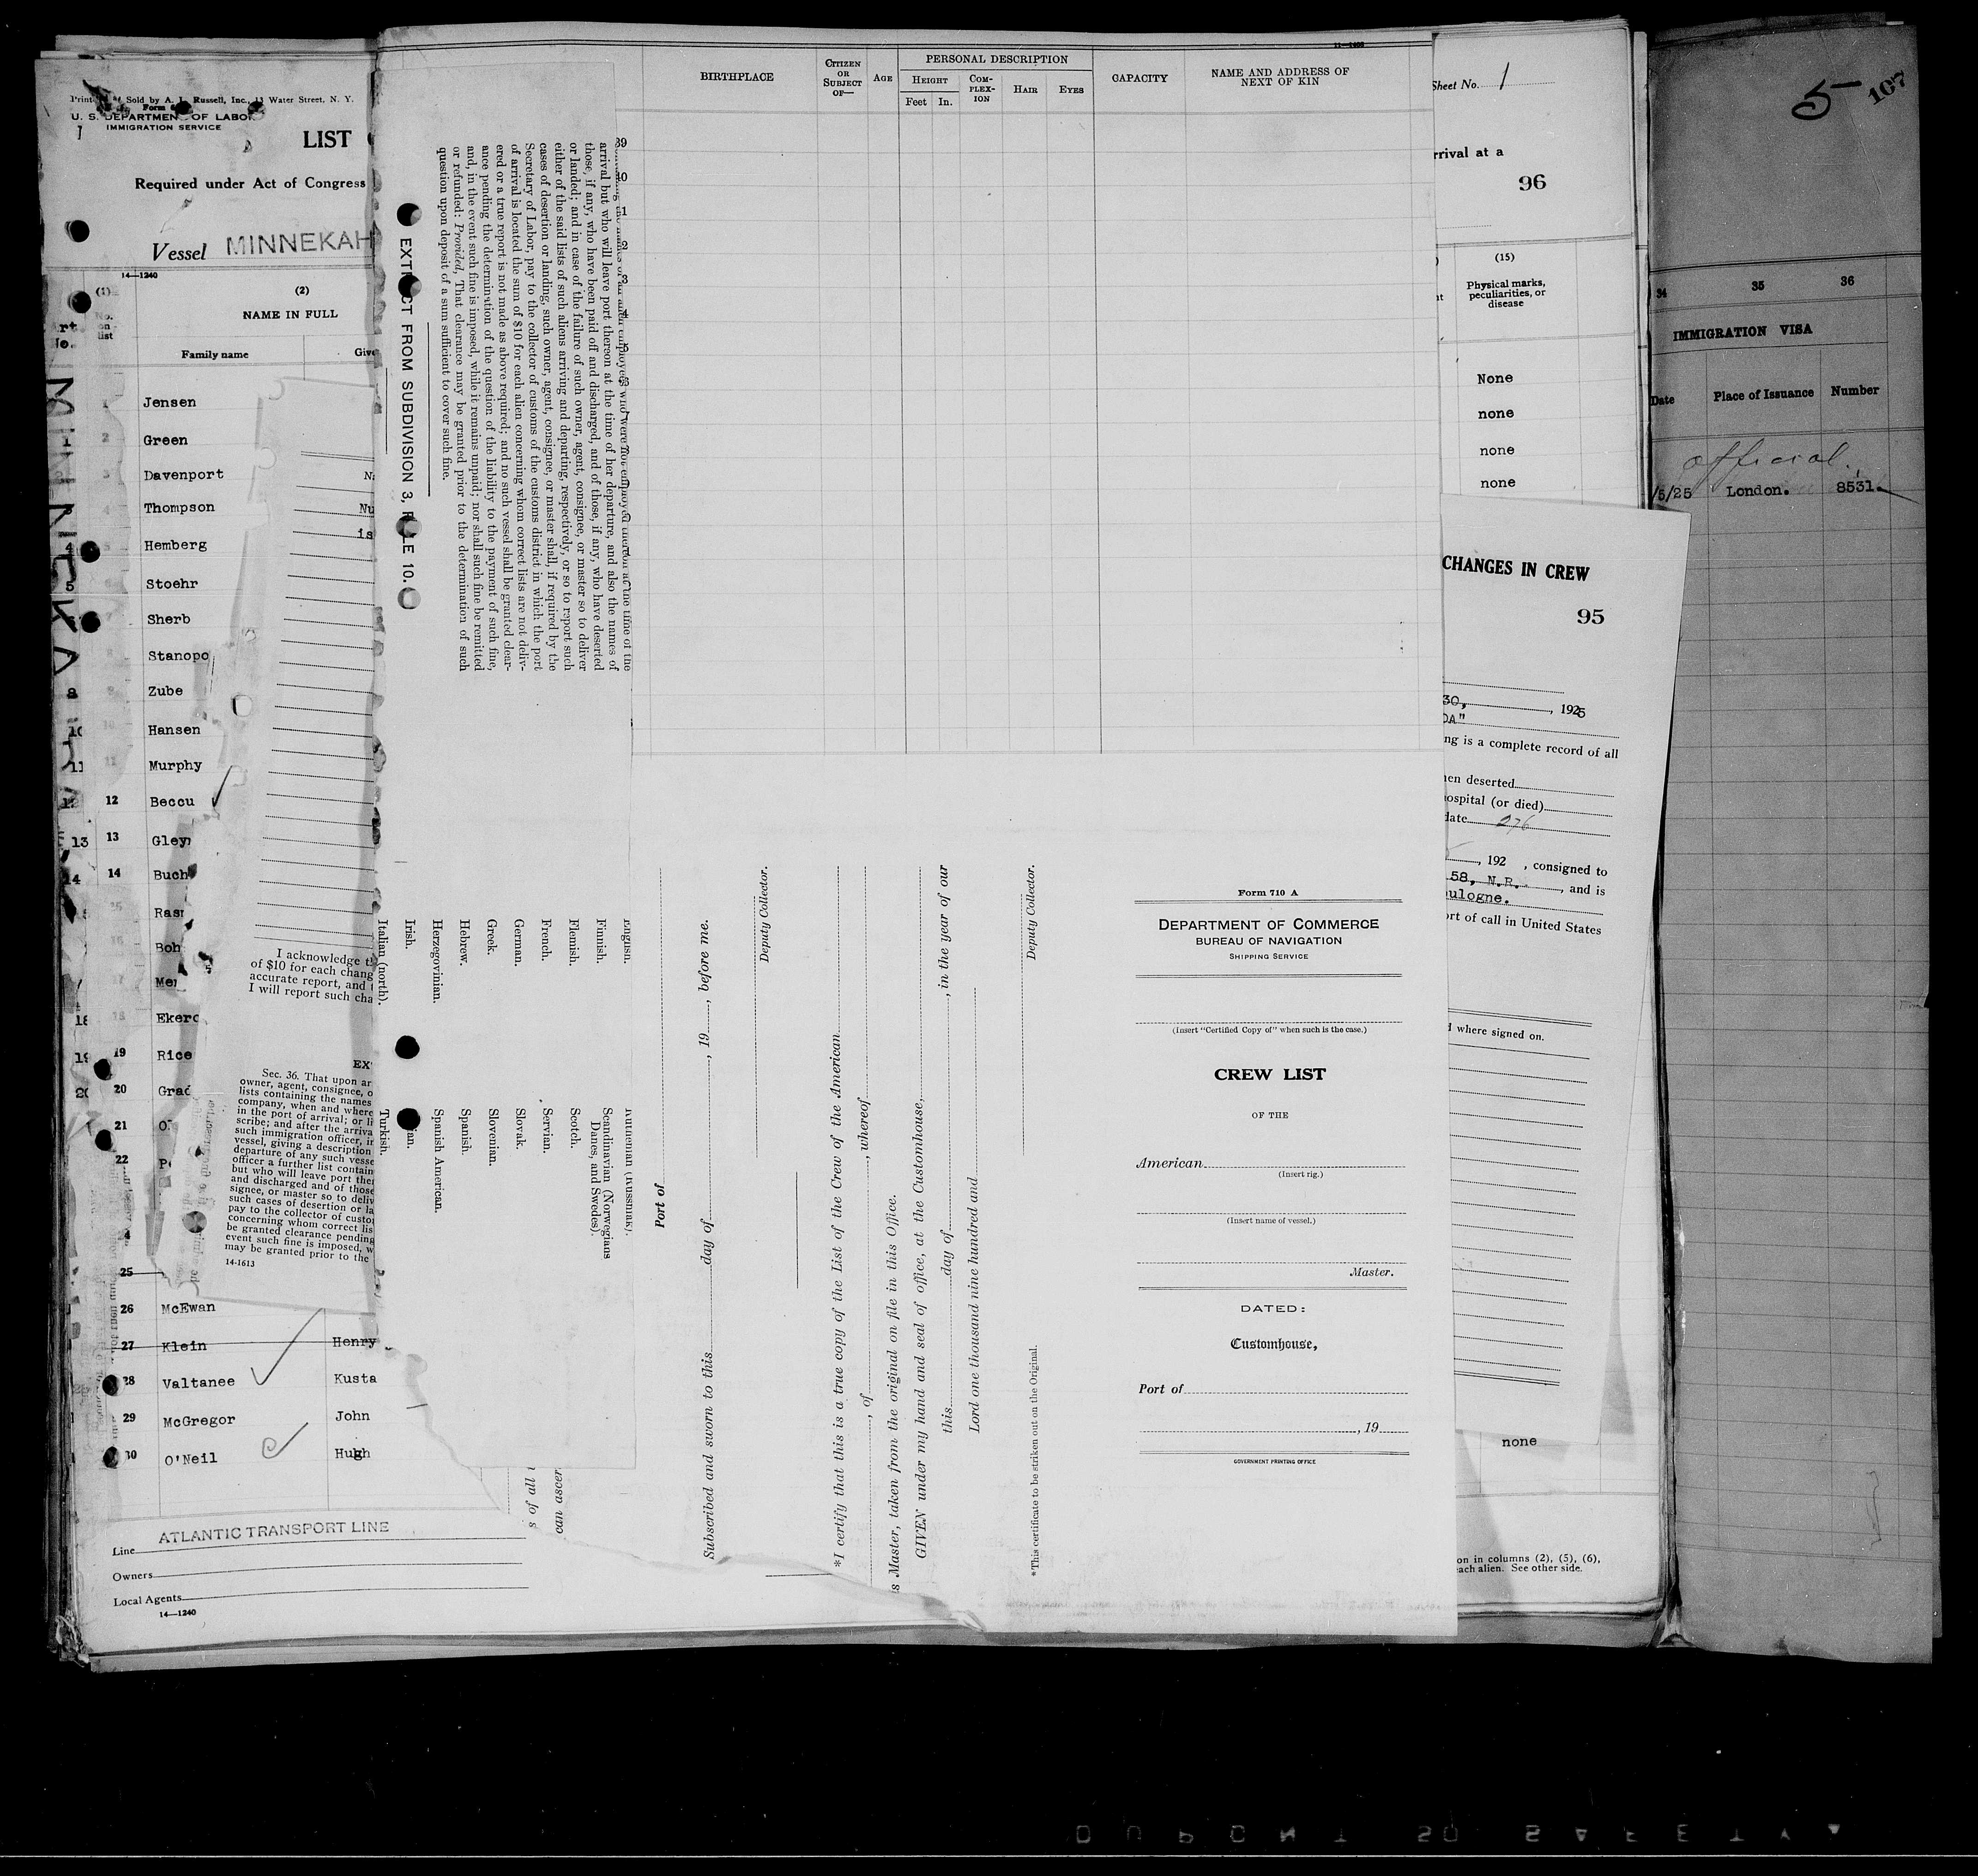 Sold by A. L. Russell, Inc., 11 Water Street, N. Y.
U. S. DEPARTMENT OF LABOR
IMMIGRATION SERVICE
LIST
Required under Act of Congress
Vessel MINNEKAH
14—1240
(1)
No. on list
(2)
NAME IN FULL
Family name
Jensen
2 Green
3 Davenport
Thompson Nu
Hemberg is
Stoehr
Sherb
Stanopo
Zube
10 Hansen
11 Murphy
12 Beccu
13 Gley
14 Buch
Ras
Boh
Me
18 Ekero
19 Rice
20 Grad
21
22
25
26 McEwan
27 Klein Henry
28 Valtanee Kusta
29 McGregor John
30 O'Neil Hugh
Line ATLANTIC TRANSPORT LINE
Owners
Local Agents
14—1240
MINNEKA
I acknowledge
of $10 for each chang
accurate report, and
I will report such cha
Sec. 36. That upon ar
owner, agent, consignee, o
lists containing the names
company, when and where
in the port of arrival; or li
scribe; and after the arriva
such immigration officer, in
vessel, giving a description
departure of any such vesse
officer a further list contain
but who will leave port ther
and discharged and of those
signee, or master so to deliv
such cases of desertion or la
pay to the collector of custo
concerning whom correct lis
be granted clearance pending
event such fine is imposed, w
may be granted prior to the
14-1613
EXTRACT FROM SUBDIVISION 3, RULE 10.
arrival but who will leave port thereon at the time of her departure, and also the names of
those, if any, who have been paid off and discharged, and of those, if any, who have deserted
or landed; and in case of the failure of such owner, agent, consignee, or master so to deliver
either of the said lists of such aliens arriving and departing, respectively, or so to report such
cases of desertion or landing, such owner, agent, consignee, or master shall, if required by the
Secretary of Labor, pay to the collector of customs of the customs district in which the port
of arrival is located the sum of $10 for each alien concerning whom correct lists are not deliv-
ered or a true report is not made as above required; and no such vessel shall be granted clear-
ance pending the determination of the question of the liability to the payment of such fine,
and, in the event such fine is imposed, while it remains unpaid; nor shall such fine be remitted
or refunded: Provided, That clearance may be granted prior to the determination of such
question upon deposit of a sum sufficient to cover such fine.
Finnish.
Flemish.
French.
German.
Greek.
Hebrew.
Herzegovinian.
Irish.
Italian (north).
Scandinavian (Norwegians
Danes, and Swedes).
Scotch.
Servian.
Slovak.
Slovenian.
Spanish.
Spanish American.
Turkish.
s of all
can ascer
BIRTHPLACE
CITIZEN OR SUBJECT OF—
AGE
PERSONAL DESCRIPTION
HEIGHT
Feet In.
COM-PLEX-ION
HAIR
EYES
CAPACITY
NAME AND ADDRESS OF NEXT OF KIN
39
Port of
Subscribed and sworn to this day of , 19 , before me.
Deputy Collector.
*I certify that this is a true copy of the List of the Crew of the American
, of , whereof
is Master, taken from the original on file in this Office.
GIVEN under my hand and seal of office, at the Customhouse,
this day of , in the year of our
Lord one thousand nine hundred and
Deputy Collector.
*This certificate to be striken out on the Original.
Form 710 A
DEPARTMENT OF COMMERCE
BUREAU OF NAVIGATION
SHIPPING SERVICE
(Insert "Certified Copy of" when such is the case.)
CREW LIST
OF THE
American
(Insert rig.)
(Insert name of vessel.)
Master.
DATED:
Customhouse,
Port of
, 19
GOVERNMENT PRINTING OFFICE
Sheet No. 1
rrival at a
96
(15)
Physical marks, peculiarities, or disease
None
none
none
none
CHANGES IN CREW
95
30, , 1925
DA"
ng is a complete record of all
en deserted
ospital (or died)
date 276
, 192 , consigned to
58, N.R. , and is
ulogne.
ort of call in United States
d where signed on.
none
on in columns (2), (5), (6),
each alien. See other side.
5
107
34 35 36
IMMIGRATION VISA
Date Place of Issuance Number
official
/5/25 London. 8531.
DUPONT SAFETY